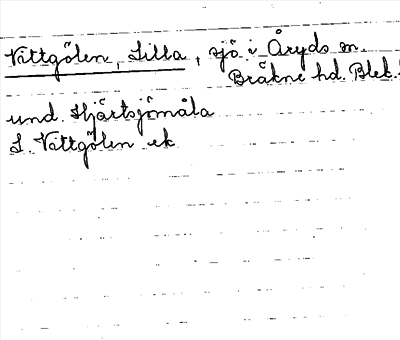 Vattgölen, Lilla, sjö i Åryds sn.
Bräkne hd. Blek.
und. Hjärtsjömåla
L. Vattgölen ek